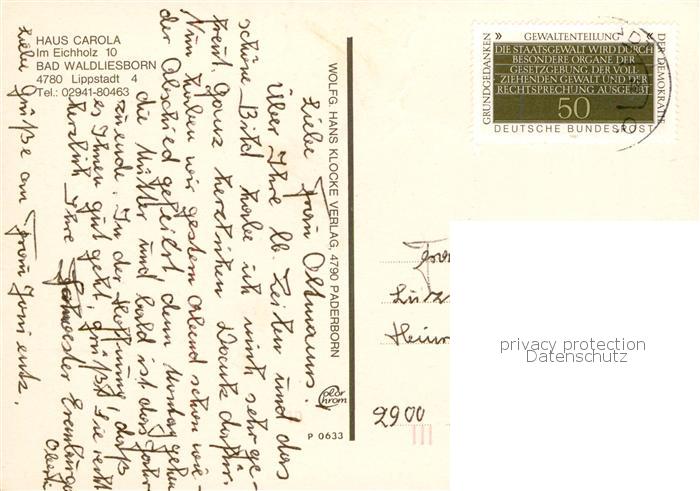 HAUS CAROLA
Im Eichholz 10
BAD WALDLIESBORN
4780 Lippstadt 4
Tel.: 02941-80463
Liebe Frau Oltmanns!
Über Ihre lb. Zeilen und das
schöne Bild habe ich mich sehr ge-
freut. Ganz herzlichen Dank dafür.
Nun haben wir gestern Abend schon wie-
der Abschied gefeiert denn Montag gehen
die Mütter und bald ist das Jahr
zuende. In der Hoffnung, daß
es Ihnen gut geht, grüßt Sie recht
herzlich Ihre
Schwester
Liebe Grüße an Frau
WOLFG. HANS KLOCKE VERLAG, 4790 PADERBORN
Color Chrom
P 0633
GRUNDGEDANKEN »
GEWALTENTEILUNG
« DER DEMOKRATIE
DIE STAATSGEWALT WIRD DURCH
BESONDERE ORGANE DER
GESETZGEBUNG, DER VOLL
ZIEHENDEN GEWALT UND DER
RECHTSPRECHUNG AUSGEÜBT
50
DEUTSCHE BUNDESPOST
2900
privacy protection
Datenschutz